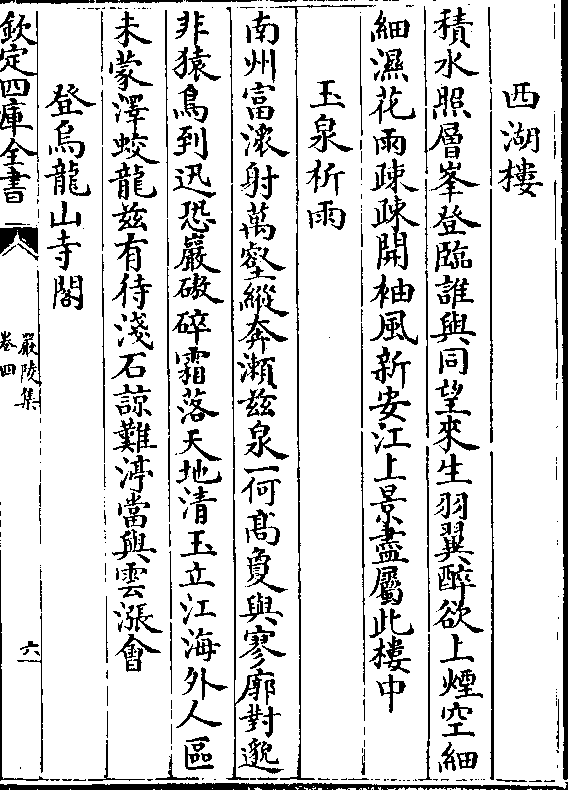 西湖樓
積水照層峯登臨誰與同望來生羽翼醉欲上煙空細
細濕花雨疎疎開袖風新安江上景盡屬此樓中
玉泉祈雨
南州富湍射萬壑縱奔瀬兹泉一何髙敻與寥廓對邈
非猿鳥到迅恐巖磝碎霜落天地清玉立江海外人區
未蒙澤蛟龍兹有待淺石諒難渟當與雲漲會
登烏龍山寺閣
欽定四庫全書
嚴陵集
卷四
六